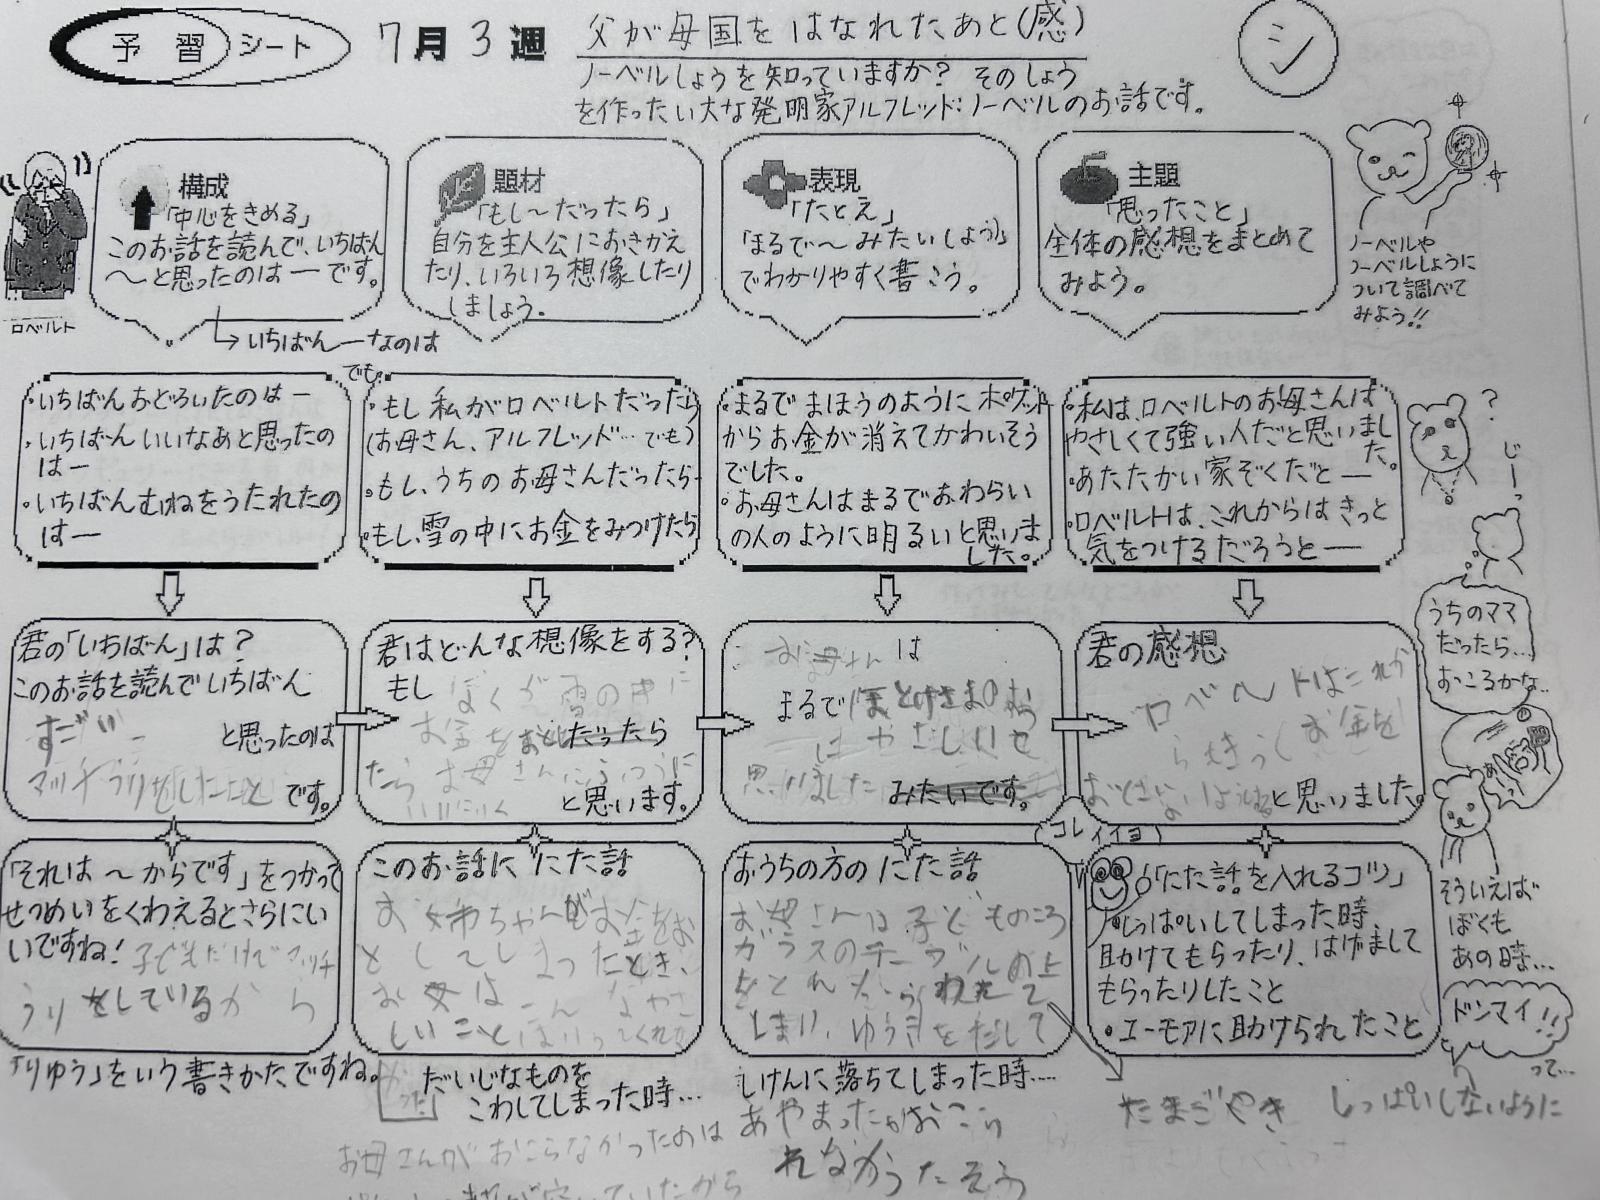 予習シート 7月3週 父が母国をはなれたあと(感)
シ
ノーベルしょうを知っていますか? そのしょう
を作ったい大な発明家アルフレッド:ノーベルのお話です。
ロベルト
構成
「中心をきめる」
このお話を読んで、いちばん
〜と思ったのは ― です。
→いちばん―なのは
題材
「もし〜だったら」
自分を主人公におきかえ
たり、いろいろ想像したり
しましょう。
表現
「たとえ」
「まるで〜みたいしょう」
でわかりやすく書こう。
主題
「思ったこと」
全体の感想をまとめて
みよう。
ノーベルや
ノーベルしょうに
ついて調べて
みよう!!
・いちばんおどろいたのは―
・いちばんいいなあと思ったの
は―
・いちばんむねをうたれたの
は―
でも
・もし私がロベルトだったら
(お母さん、アルフレッド…でも)
・もし、うちのお母さんだったら―
・もし、雪の中にお金をみつけたら
・まるでまほうのようにポケット
からお金が消えてかわいそう
でした。
・お母さんはまるでおわらい
の人のように明るいと思いま
した。
・私は、ロベルトのお母さんは
やさしくて強い人だと思いまし
た。
・あたたかい家ぞくだと―
・ロベルトは、これからはきっと
気をつけるだろうと―
?
じーっ
うちのママ
だったら…
おこるかな..
君の「いちばん」は?
このお話を読んでいちばん
すごい
と思ったのは
マッチうりをしたこと です。
君はどんな想像をする?
もし ぼくが雪の中に
お金をおとしだったら
たらお母さんにふつうに
と思います。
お母さんは
まるでほとけさまの
はやさしいと
思いました みたいです。
君の感想
ロベルトはこれか
らはきっとお金を
おとさないようにすると思いました。
「それは〜からです」をつかって
せつめいをくわえるとさらにい
いですね! 子どもだけでマッチ
うりをしているから
「りゆう」をいう書きかたですね。
このお話に にた話
お姉ちゃんがお金をお
としてしまったとき、
お父は こんなやさ
しいことはいってくれな
かった」
だいじなものを
こわしてしまった時…
おうちの方の にた話
お母さんは子どものころ
ガラスのテーブルの上
をとんだらわれて
しまい、ゆうきをだして
しけんに落ちてしまった時….
あやまったがおこら
れなかったそう
コレイイヨ
「にた話を入れるコツ」
・しっぱいしてしまった時、
助けてもらったり、はげまして
もらったりしたこと
・ユーモアに助けられたこと
そういえば
ぼくも
あの時…
ドンマイ!!
って…
たまごやき
しっぱいしないように
お母さんがおこらなかったのは